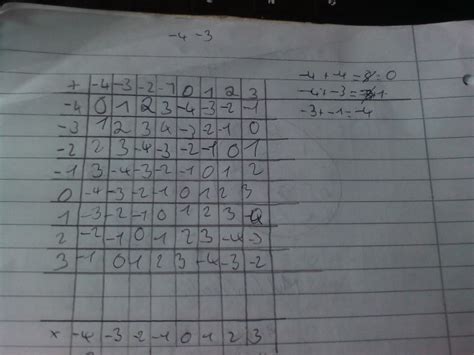 -4 -3
+ -4 -3 -2 -1 0 1 2 3
-4 0 1 2 3 -4 -3 -2 -1
-3 1 2 3 4 -3 -2 -1 0
-2 2 3 -4 -3 -2 -1 0 1
-1 3 -4 -3 -2 -1 0 1 2
0 -4 -3 -2 -1 0 1 2 3
1 -3 -2 -1 0 1 2 3
2 -2 -1 0 1 2 3 -4 -3
3 -1 0 1 2 3 -4 -3 -2
x -4 -3 -2 -1 0 1 2 3
-4 + -4 = 0
-4 + -3 = 1
-3 + -1 = -4